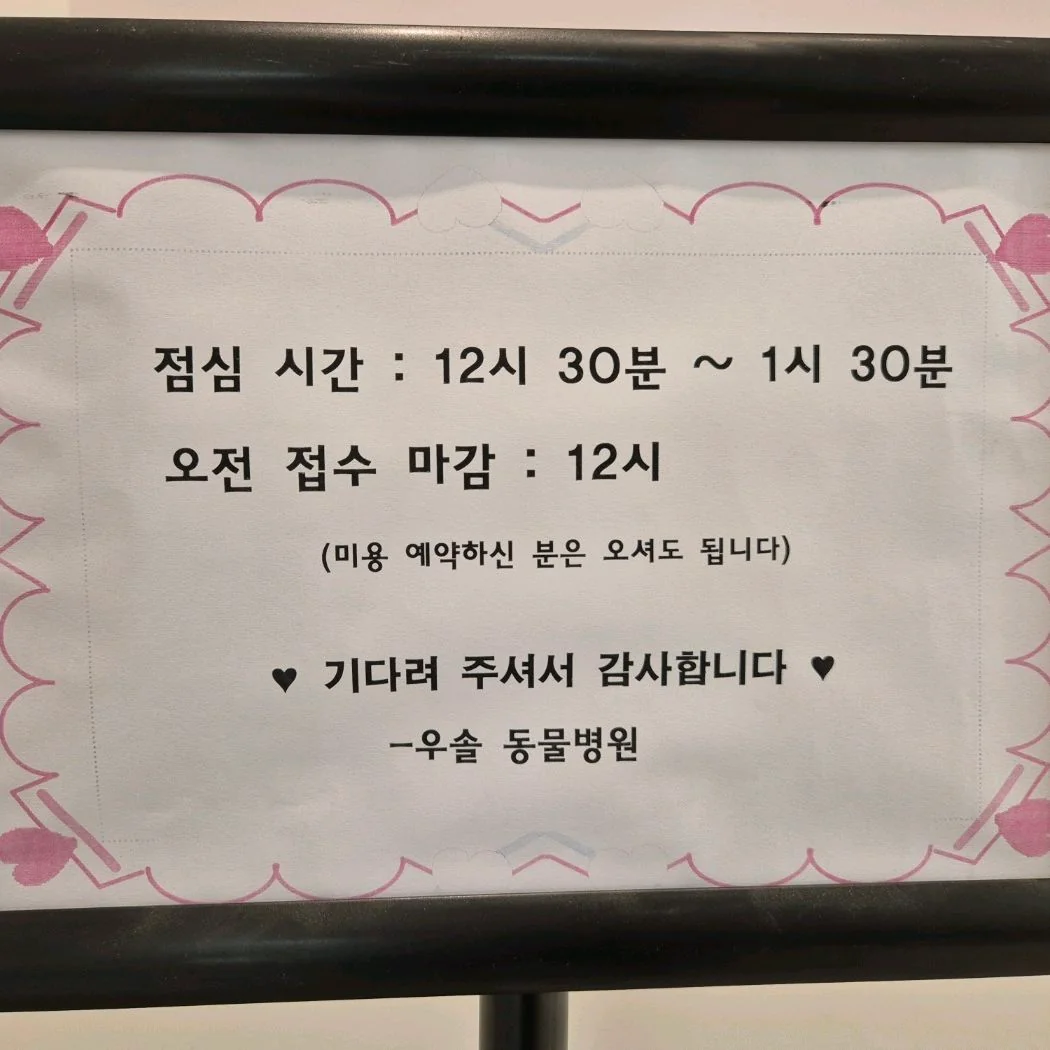 점심 시간 : 12시 30분 ~ 1시 30분
오전 접수 마감 : 12시
(미용 예약하신 분은 오셔도 됩니다)
♥ 기다려 주셔서 감사합니다 ♥
-우솔 동물병원